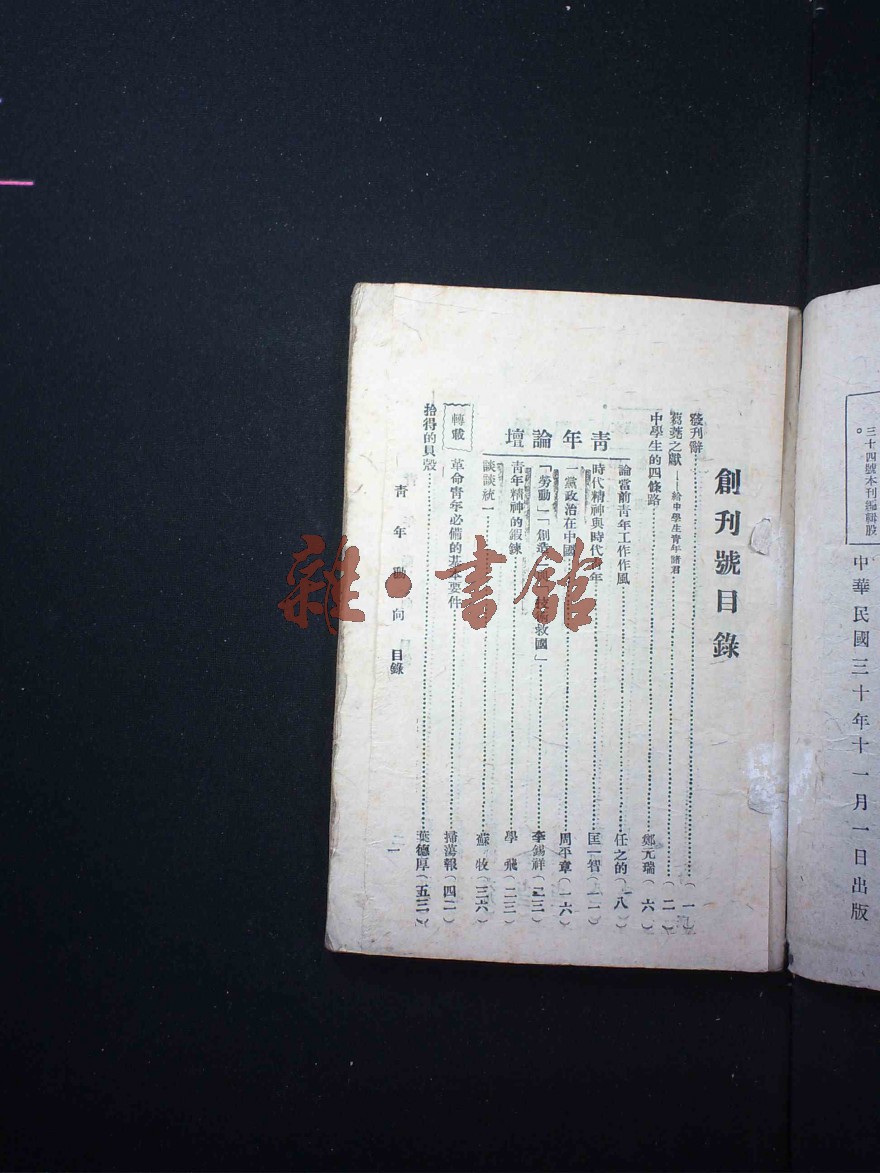 三十四號本刊編輯股。
中華民國三十年十一月一日出版
創刊號目錄
發刊辭……(一)
芻蕘之獻——給中學生青年諸君……(二)
中學生的四條路……鄭元瑞(六)
青年論壇
論當前青年工作作風……任之的(八)
時代精神與時代青年……匡一智(一一)
一黨政治在中國……周平章(一六)
「勞動」「創造」 救國」……李錫祥
青年精神的鍛鍊……學飛(二三)
談談統一……蘇牧(三六)
轉載
革命青年必備的基本要件……掃蕩報(四二)
拾得的貝殼……葉德厚(五三)
青年動向 目錄
一
雜·書館